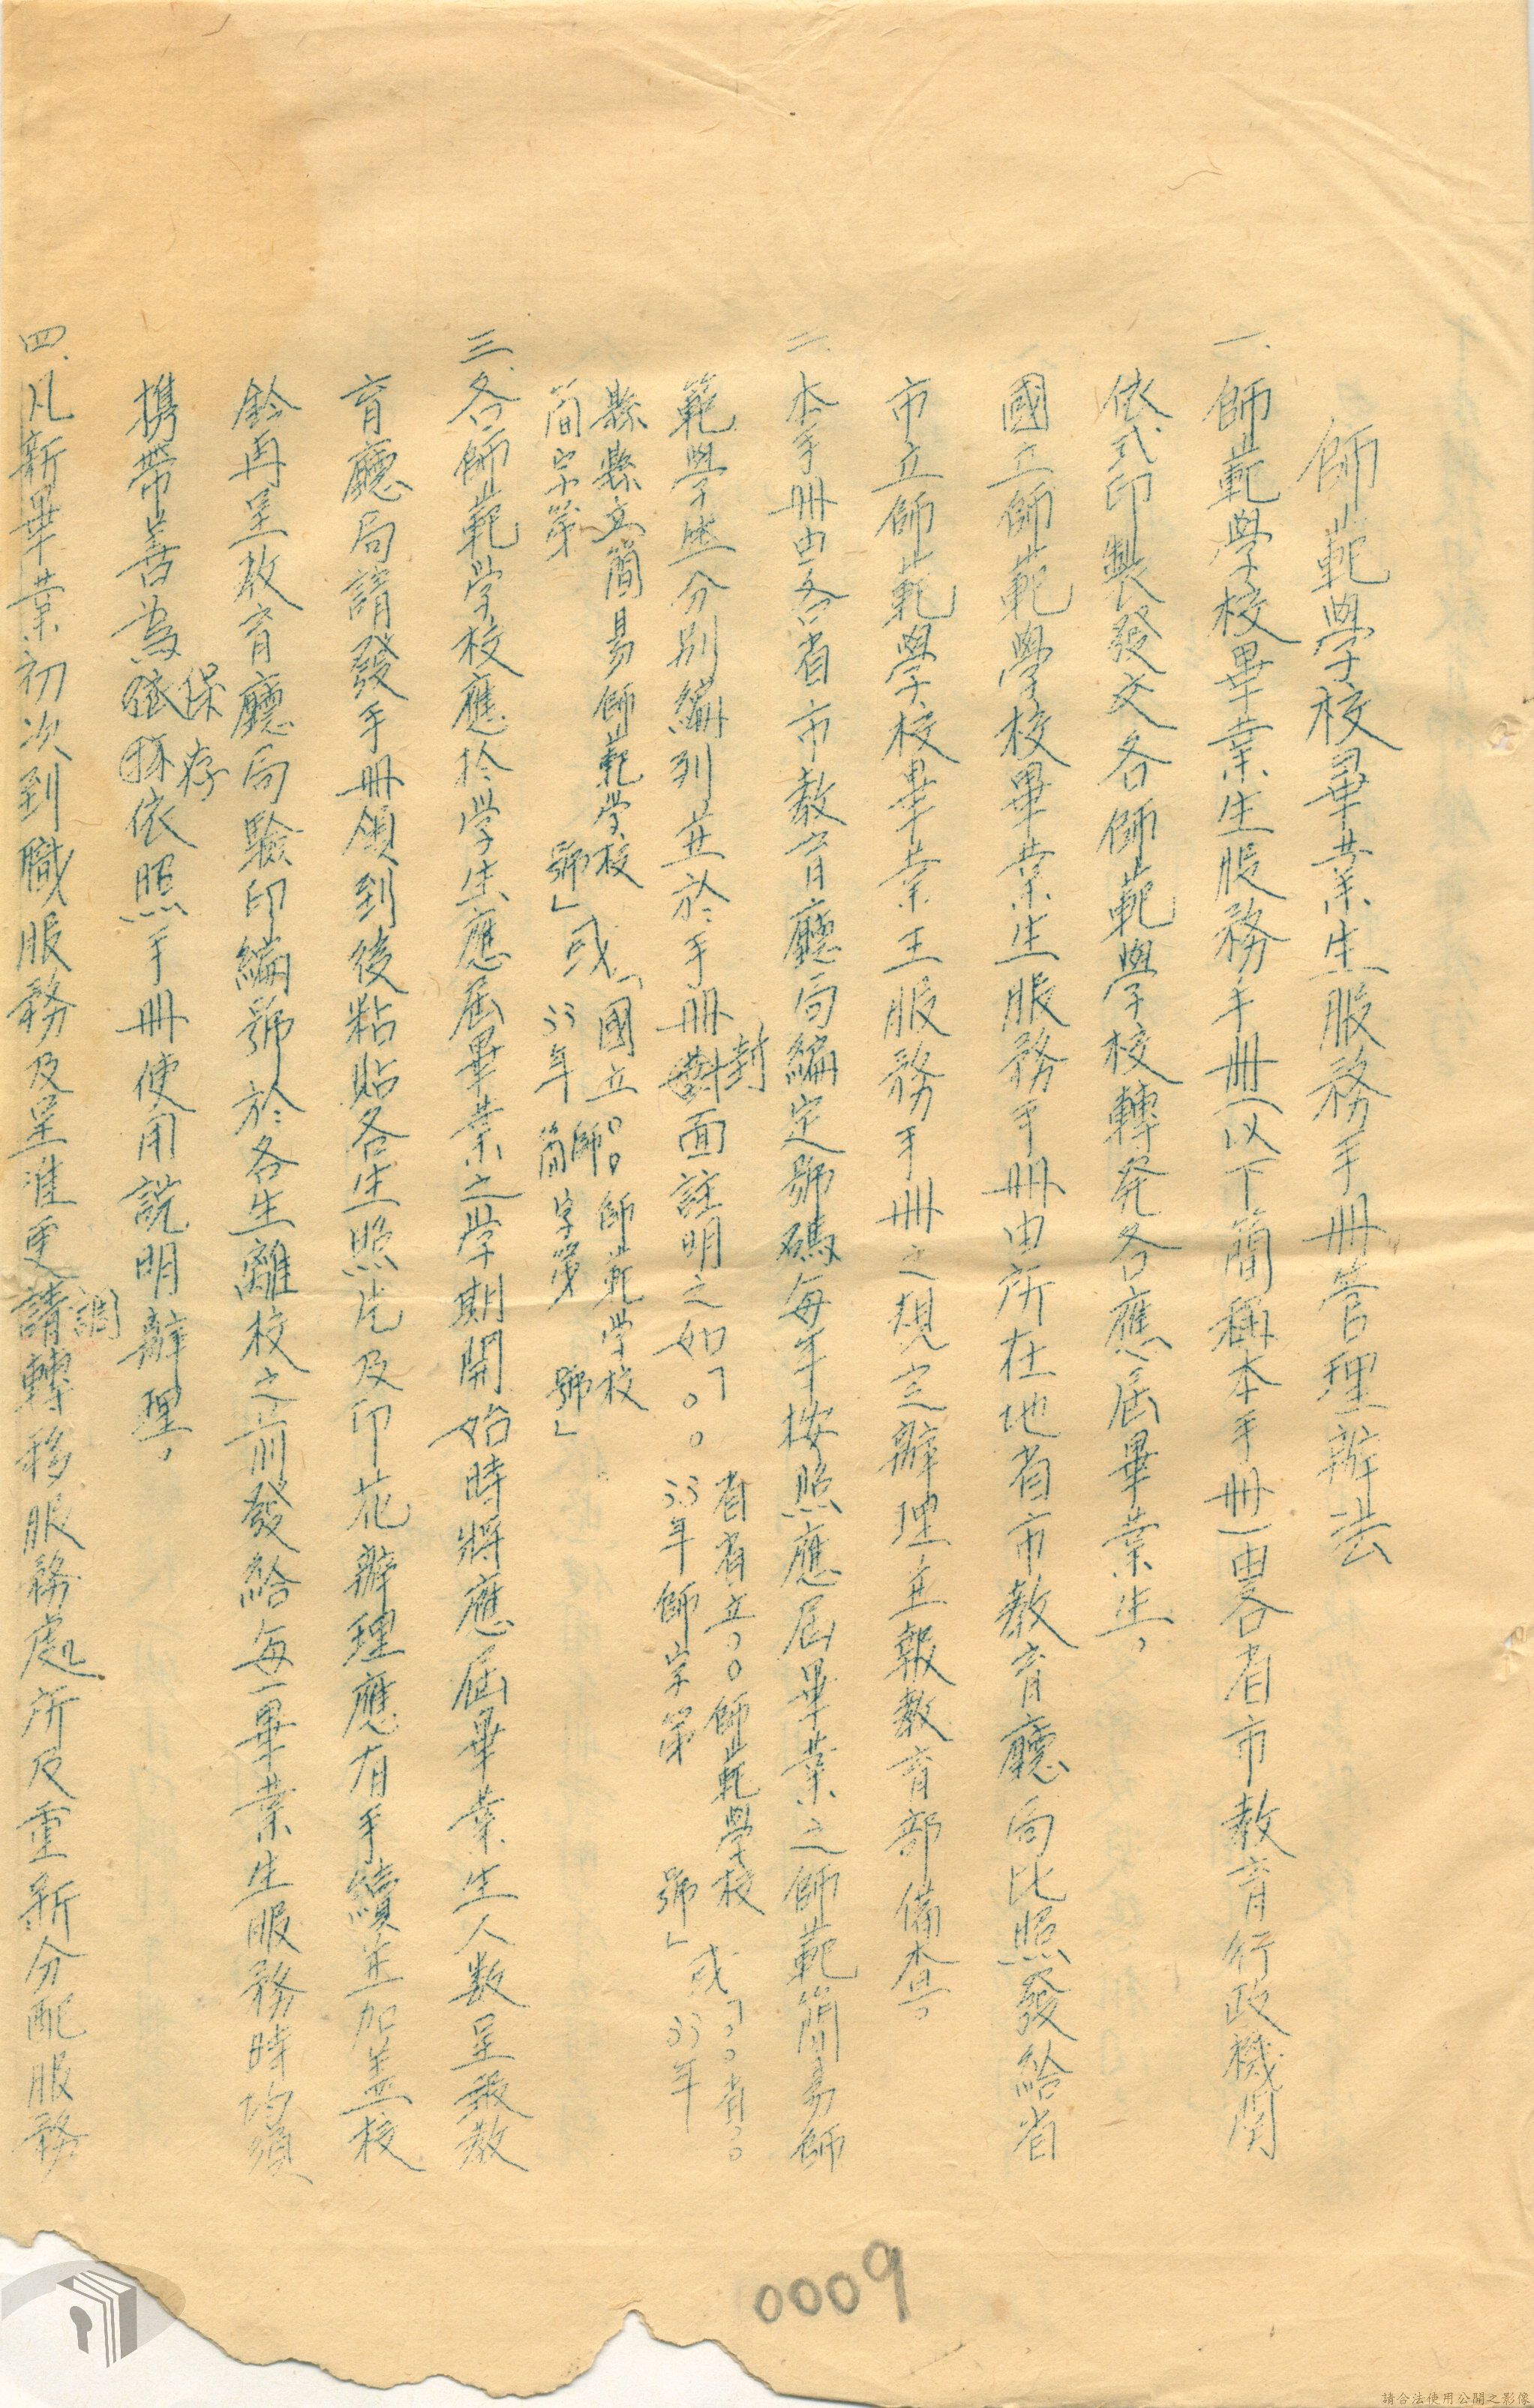 師範學校畢業生服務手冊管理辦法
一、師範學校畢業生服務手冊（以下簡稱本手冊）由各省市教育行政機関
依式印製發交各師範學校轉発各應屆畢業生，
國立師範學校畢業生服務手冊由所在地省市教育廳局比照發給省
市立師範學校畢業王服務手冊之規定辦理並報教育部備查。
二、本手冊由各省市教育廳局編定號碼每年按照應屆畢業之師範簡易師
範學生分別編列並於手冊封面註明之如「○○省省立○○師範學校
33年師字第　　號」或「○○省○○
縣縣立簡易師範学校
33年
簡字第　　號」或「國立○○師範学校
33年師簡字第　　號」
三、各師範学校應於学生應屆畢業之学期開始時將應屆畢業生人数呈報教
育廳局請發手冊領到後粘貼各生照片及印花辦理應有手續並加盖校
鈐再呈教育廳局驗印編號於各生離校之前發給每一畢業生服務時均須
携帶善為保存依照手冊使用説明辦理，
四、凡新畢業初次到職服務及呈准更調轉移服務處所及重新分配服務
0009
請合法使用公開之影像